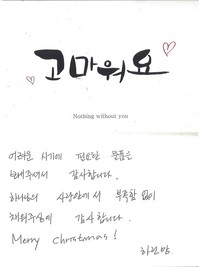 고마워요
Nothing without you
어려운 시기에 필요한 물품을
보내주어서 감사합니다.
하나님의 사랑안에서 부족함 없이
채워주심에 감사합니다.
Merry Christmas!